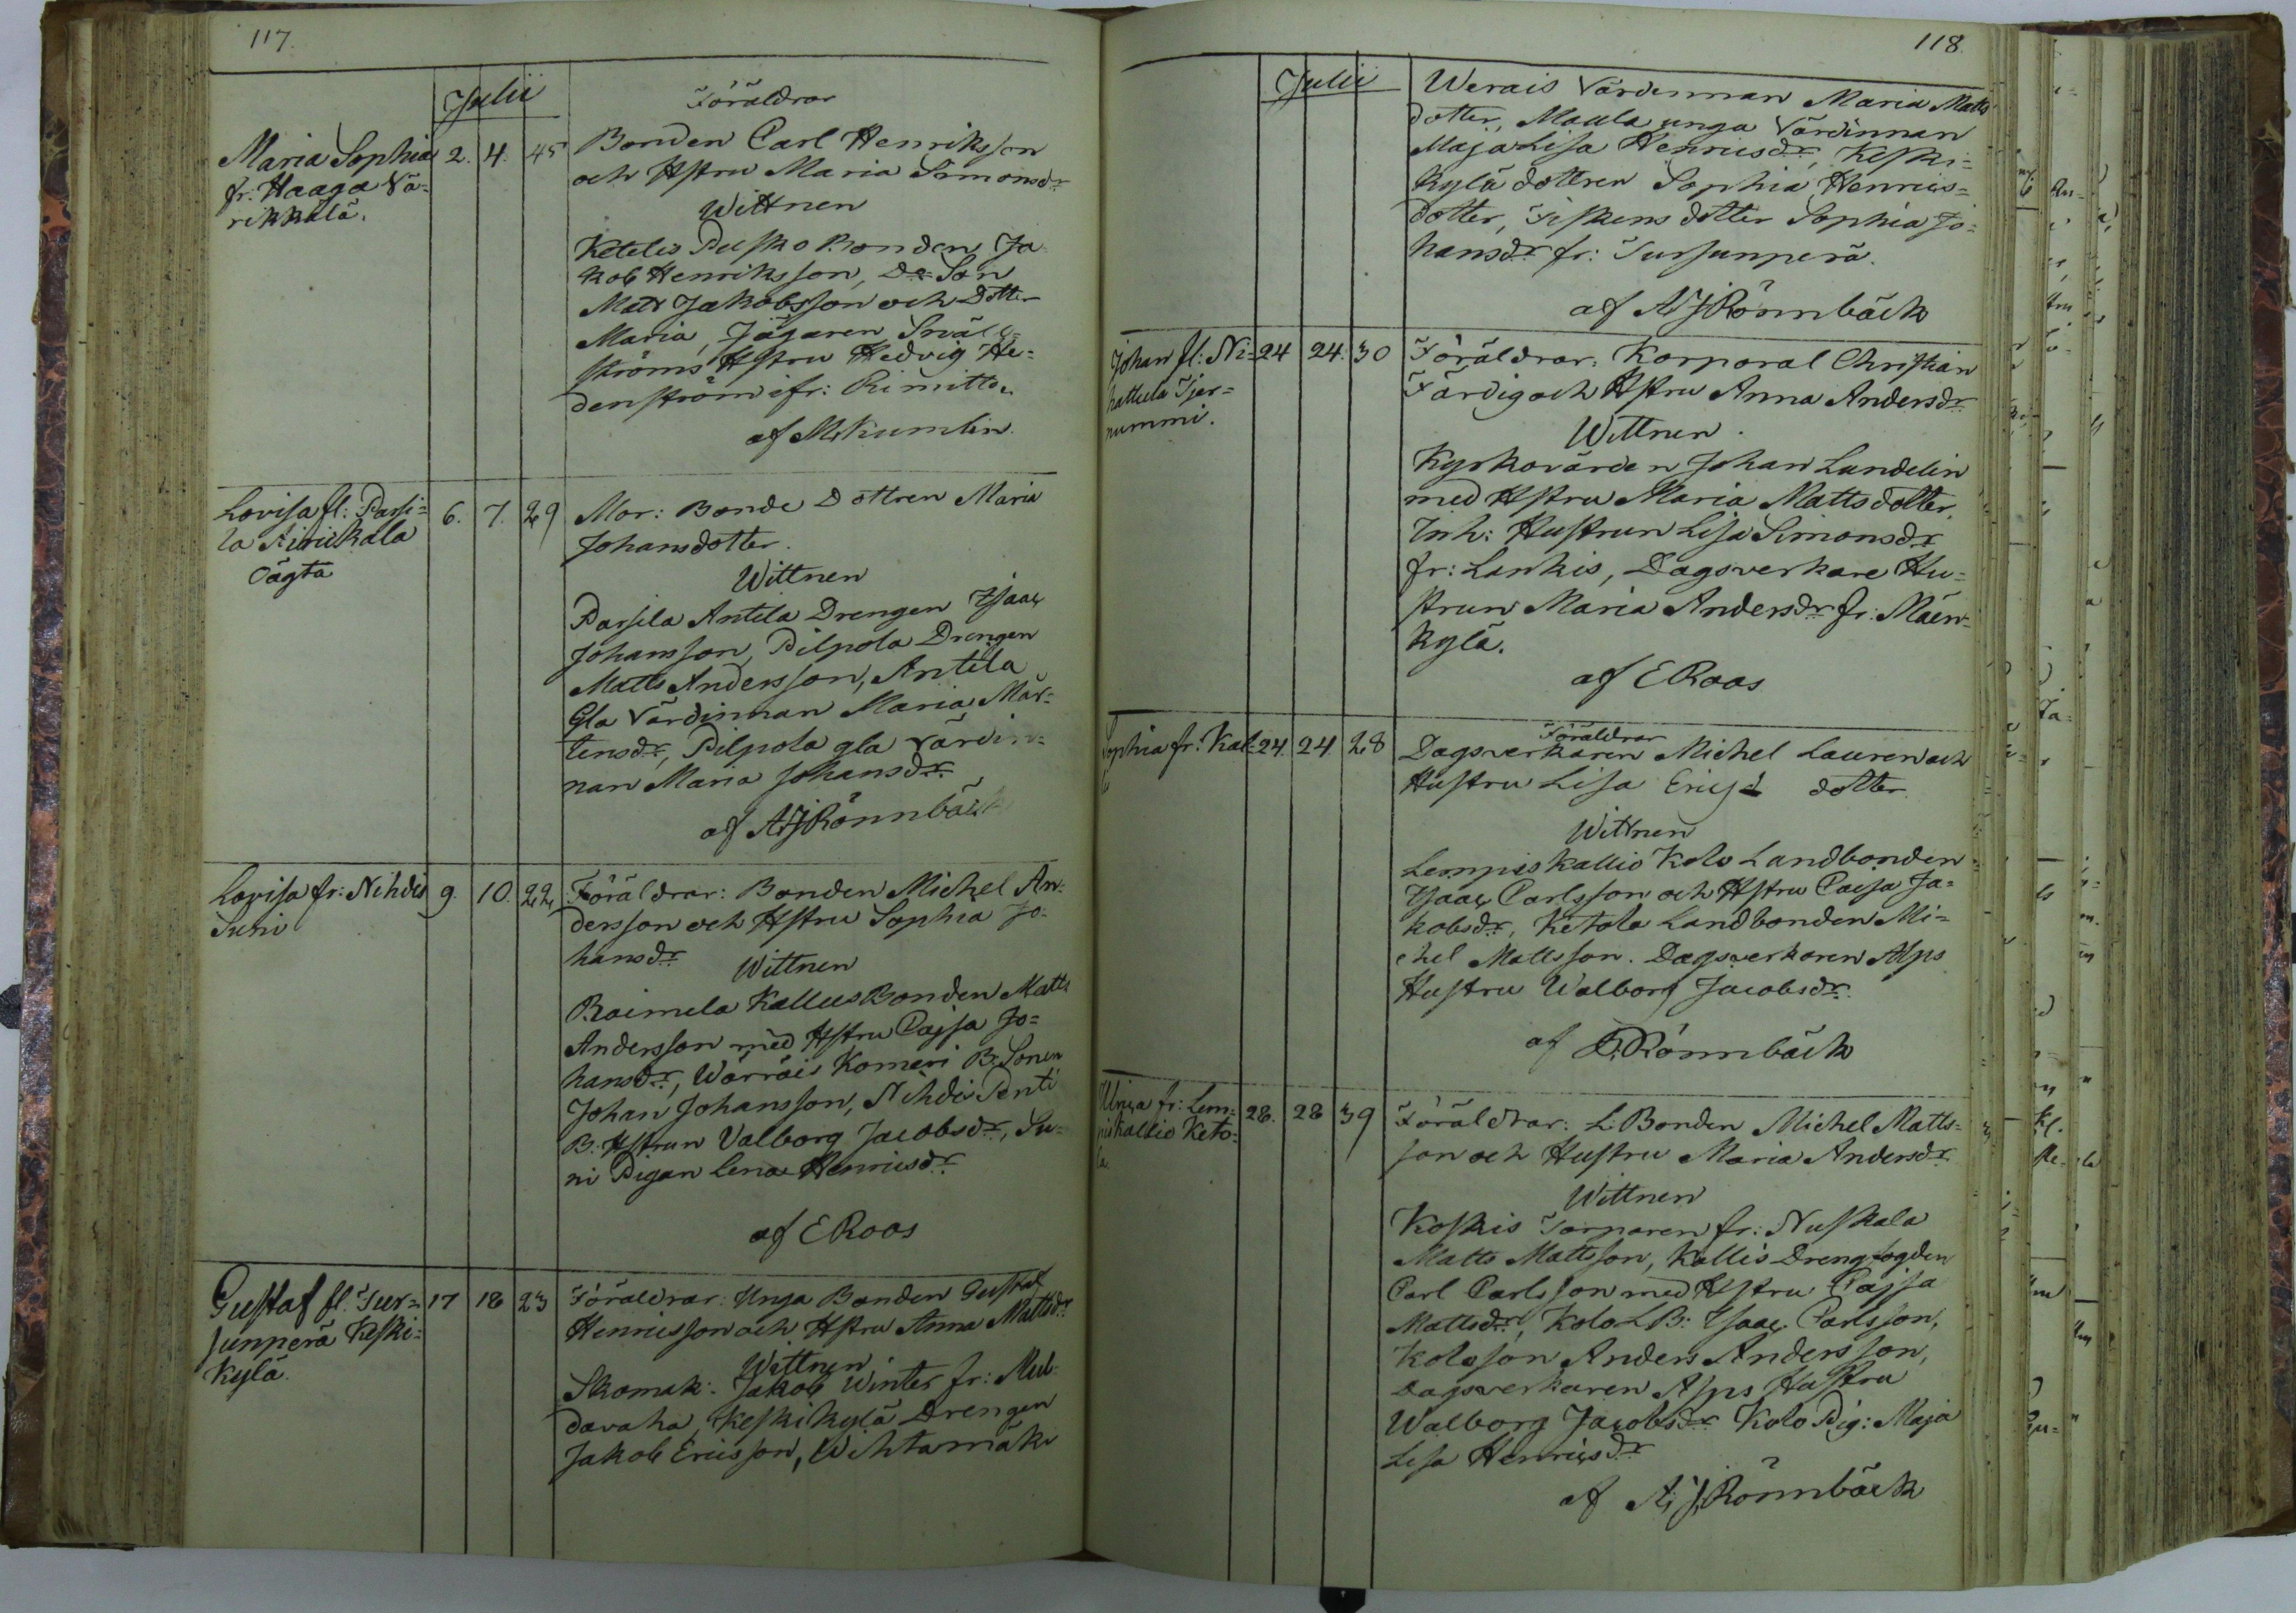 117.
Julii
Föräldrar
Maria Sophia 2. 4. 45 Bonden Carl Henriksson
fr. Haaga Vä= och Hstru Maria Simonsdr
rikkälä. Wittnen
Ketelis Pusko Bonden Ja
kob Henriksson, Do Son
Matt Jakobsson och Dotter
Maria, Jägaren
ströms Hstru Hedvig He=
denström ifr: Rimitto.
af M. Kumlin.
Lovisa fl: Parsi= 6. 7. 29 Mor: Bonde Dottren Maria
la Airikala Johansdotter.
Oägta Wittnen
Parsila Antila Drengen Isaac
Johansson, Pilpola Drengen
Matts Andersson, Antila
Gla Värdinnan Maria Mår=
tensdr, Pilpola gla Värdin=
nan Maria Johansdr
af A J Rönnbäck
Lovisa fr: Nihdis 9. 10. 22 Föräldrar: Bonden Michel An=
Suni dersson och Hstru Sophia Jo=
hansdr Wittnen
Raimela Kallus Bonden Matts
Andersson med Hstru Cajsa Jo=
hansdr, Wärräis Komeri B: Sonen
Johan Johansson, Nihdis Penti
B: Hstrun Valborg Jacobsdr, Su=
ni Pigan Lena Henricsdr
af E Roos
Gustaf fl. Tur= 17 18 23 Föräldrar: Unga Bonden Gustaf
sunperä Keski= Henricsson och Hstru Anna Mattsdr
kylä. Wittnen
Skomak: Jakob Winter fr: Mul=
davaha, Keskikylä Drengen
Jakob Ericsson, Wihtamäki
118.
Julii
Werais Värdinnan Maria Matts
dotter, Maula unga Värdinnan
Maja Lisa Henricsdr, Keski=
kylä dottren Sophia Henrics=
dotter, Fiskens dotter Sophia Jo=
hansdr fr: Tursunperä.
af A J Rönnbäck
Johan fl: Ni= 24 24. 30 Föräldrar: Korporal Christian
kattula Tjer= Färdig och Hstru Anna Andersdr
nummi. Wittnen.
Kyrkovärden Johan Lundelin
med Hstru Maria Mattsdotter,
Inh: Hustrun Lisa Simonsdr
fr: Lankis, Dagsverkare Hu=
strun Maria Andersdr fr: Mäen=
kylä.
af E Roos
Sophia fr: Kal= 24. 24 28 Föräldrar
Dagsverkaren Michel Lauren och
Hustru Lisa Erics dotter
Wittnen
Lempiskallio Kolo Landbonden
Isaac Carlsson och Hstru Caisa Ja=
kobsdr, Ketola Landbonden Mi=
chel Mattsson. Dagsverkaren Alps
Hustru Walborg Jacobsdr.
af Rönnbäck
Ulrica fr: Lem= 28. 28 39 Föräldrar: L. Bonden Michel Matts=
piskallio Keto= son och Hustru Maria Andersdr
la Wittnen
Koskis Torparen fr: Nuskala
Matts Mattsson, Kallis Drengfogden
Carl Carlsson med Hstru Cajsa
Mattsdr, Kolo L B: Isaac Carlsson,
Kolo son Anders Andersson,
Dagsverkaren Alps Hustru
Walborg Jacobsdr Kolo Pig: Maja
Lisa Henricsdr
af A. J. Rönnbäck